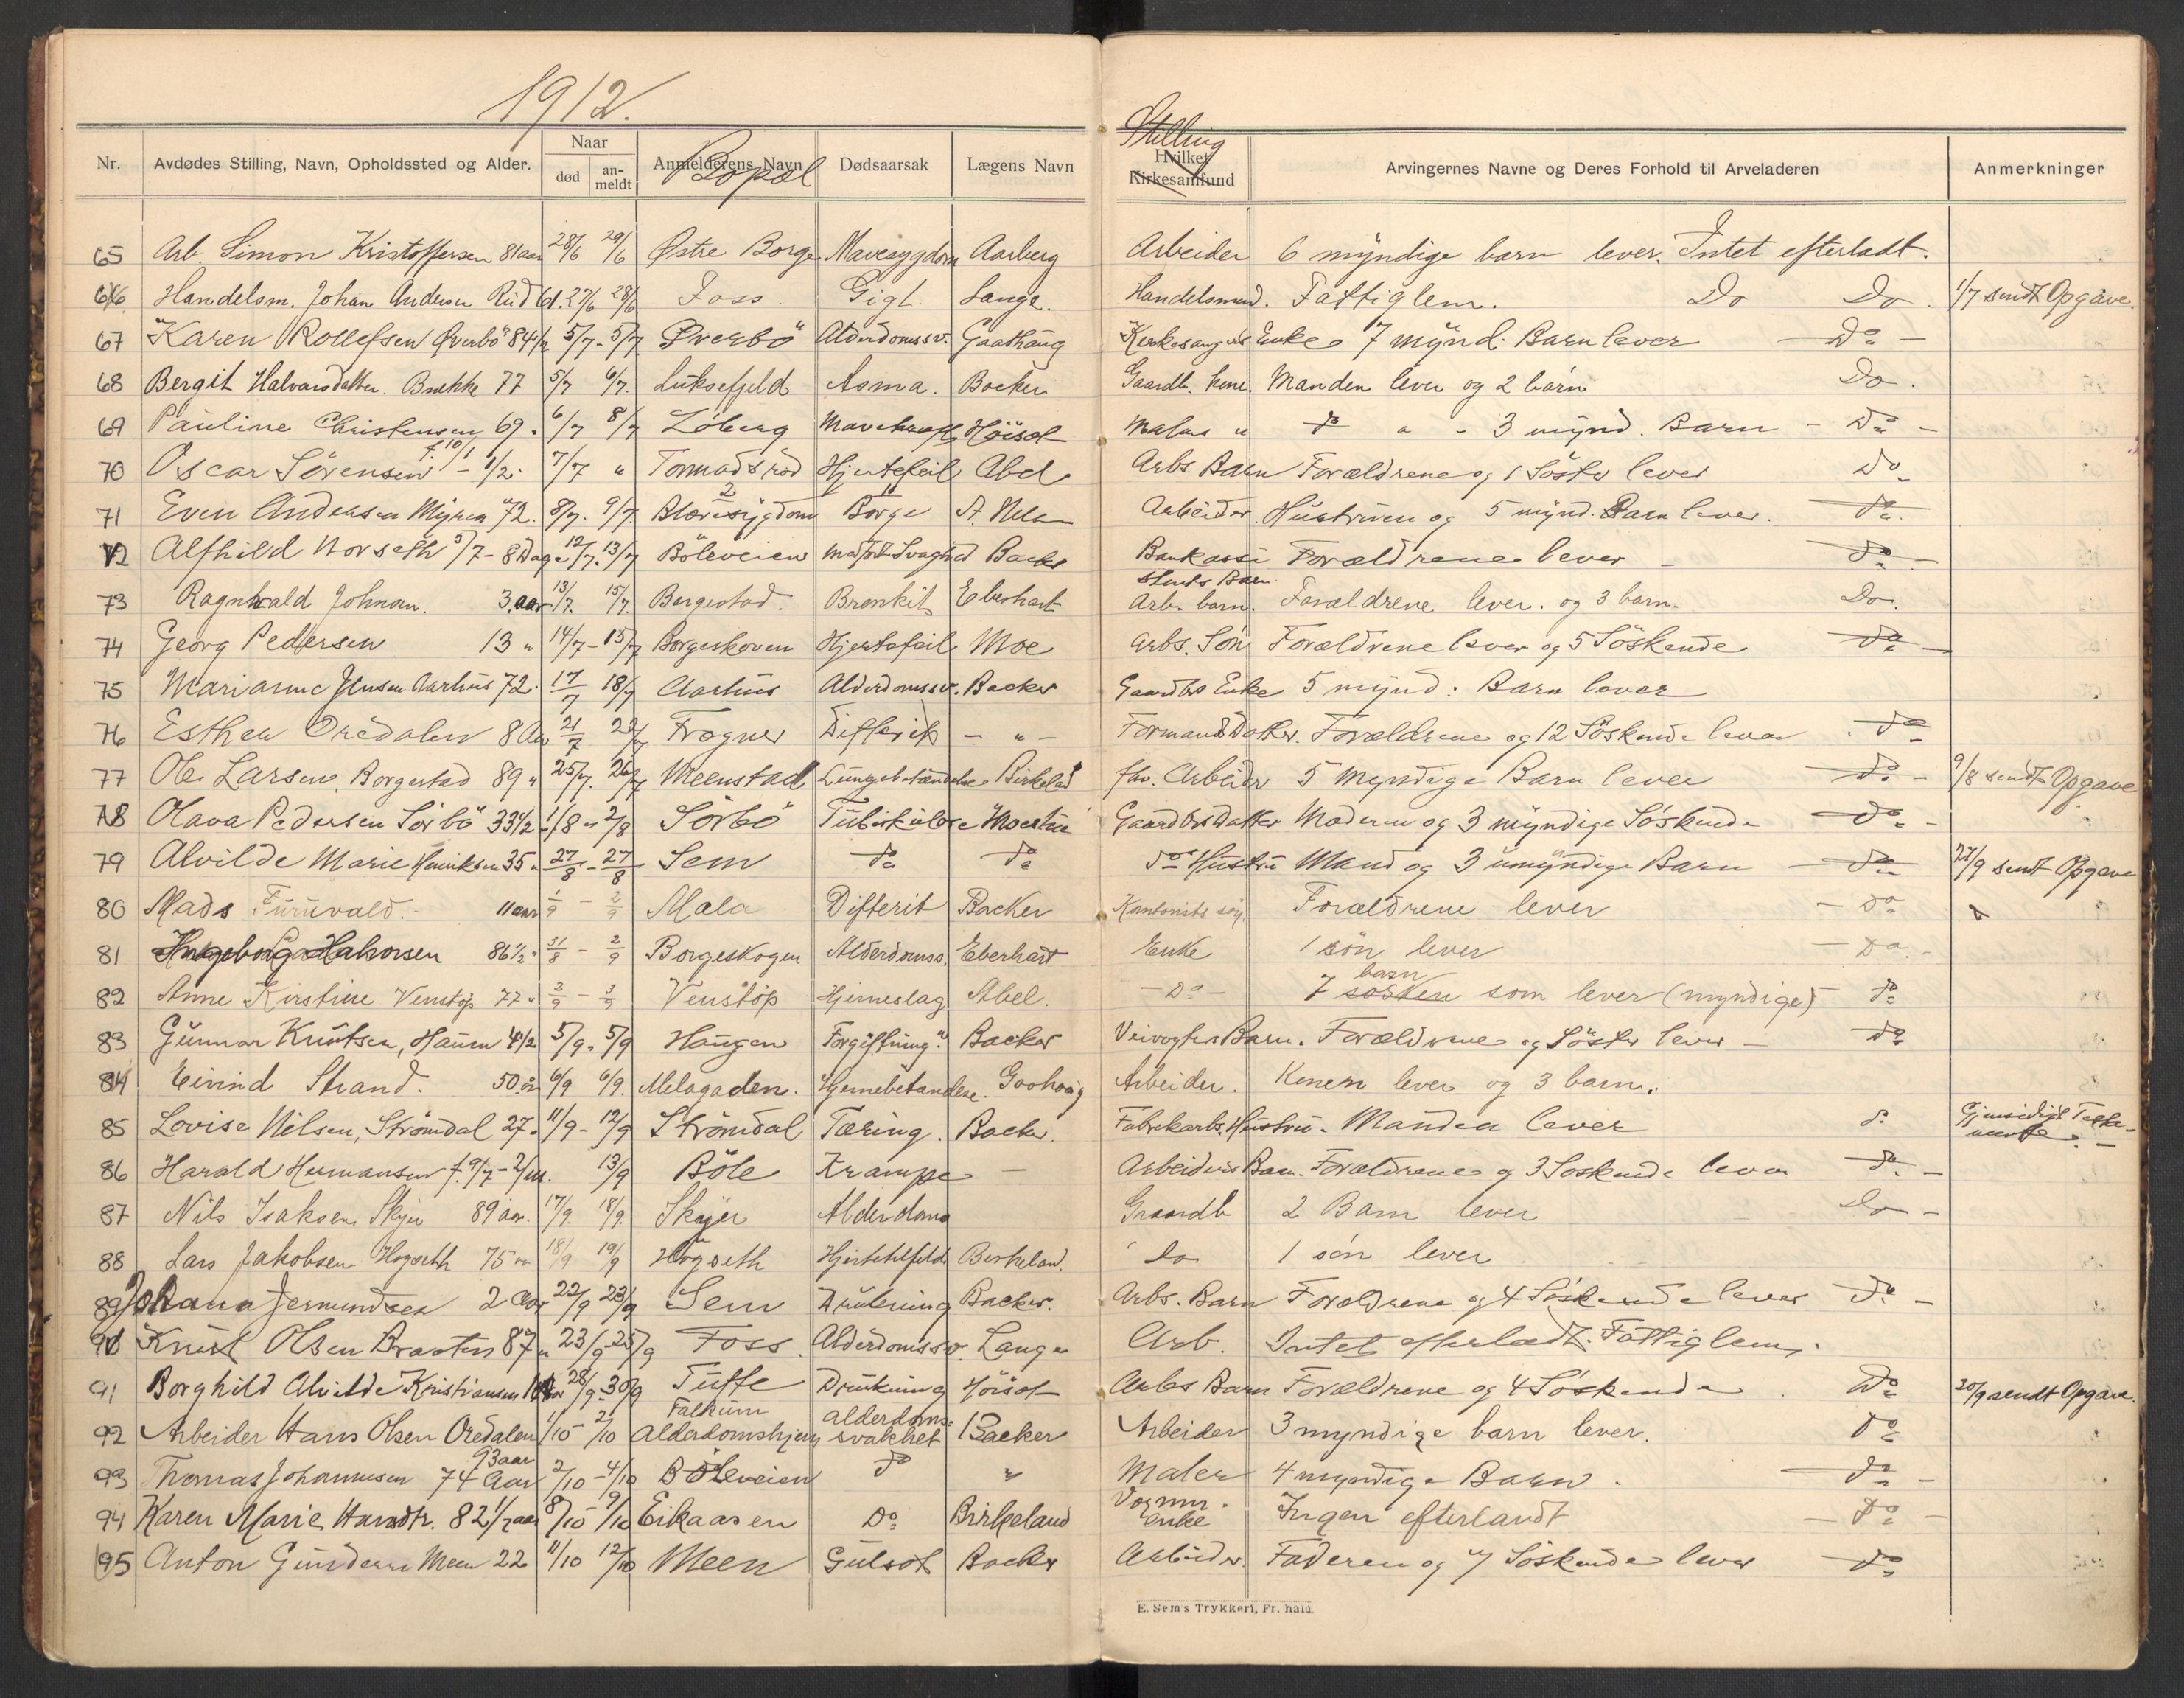 1912.
Nr. Avdødes Stilling, Navn, Opholdssted og Alder. Naar død an-meldt Anmelderens Navn Bopæl Dødsaarsak Lægens Navn Stilling Hvilket Kirkesamfund Arvingernes Navne og Deres Forhold til Arveladeren Anmerkninger
65 Arb. Simon Kristoffersen 81 aar 28/6 29/6 Østre Borge Mavesygdom Aarberg Arbeider 6 myndige barn lever. Intet efterladt.
66 Handelsm. Johan Andersen Rud 61. 27/6 28/6 Foss. Gigt. Lange. Handelsmand. Fattiglem. Do Do. 1/7 sendt Opgave.
67 Karen Rollefsen Øverbö 84 1/2 5/7 - 5/7 Øverbö Alderdomssv. Gaathaug Kirkesangers Enke 7 mynd. Barn lever Do -
68 Bergit Halvorsdatter. Brekke 77 5/7 6/7. Luksefjeld Asma. Backer Gaardb. kone. Manden lever og 2 barn Do.
69 Pauline Christensen 69. 6/7 8/7 Löberg Mavekræft Höisot Malers " do " - 3 mynd. Barn - Do -
70 Oscar Sörensen f. 10/1 - 1/2. 7/7 " Tormodsröd Hjertefeil Abel Arbs. Barn Forældrene og 1 Söster lever Do
71 Even Andersen Myren 72. 8/7. 9/7 2 Blæresygdom 1 Borge A. Nels Arbeider. Hustruen og 5 mynd. Barn lever. Do.
72 Alfhild Norseth 5/7 - 8 Dage 12/7. 13/7 Böleveien Medfödt Svaghed Backer Bankassistents Barn Forældrene lever - Do
73 Ragnvald Johnsen. 3 aar 13/7. 15/7. Borgestad. Bronkit Eberhart Arb. barn. Forældrene lever. og 3 barn. Do.
74 Georg Pedersen 13 " 14/7 - 15/7 Borgeskoven Hjertefeil Moe Arbs. Sön Forældrene lever og 5 Söskende Do -
75 Marianne Jensen Aarhus 72. 17/7 18/7 Aarhus Alderdomssv. Backer Gaardbrs Enke 5 mynd: Barn lever
76 Esther Oredalen 8 Aar 21/7 22/7 Frogner Difterit - " - Formands Datter. Forældrene og 12 Söskende lever . Do
77 Ole Larsen, Borgestad 89 " 25/7. 26/7 Meenstad Lungebetændelse Birkeland fhv. Arbeider 5 Myndige Barn lever Do - 9/8 sendt Opgave
78 Olava Pedersen Sörbö 33 1/2 1/8 - 2/8 Sörbö Tuberkulose Moestue Gaardbrs Datter Moderen og 3 myndige Söskende Do -
79 Alvilde Marie Henriksen 35 " 27/8 - 27/8 Sem do do do Hustru Mand og 3 umyndige Barn Do 27/9 sendt Opgave
80 Mads Furuvald. 11 aar 1/9 - 2/9 Mæla Difterit Backer Kontorists søn Forældrene lever - Do
81 Ingeborg Halvorsen 86 1/2 " 31/8 - 2/9 Borgeskogen Alderdomss. Eberhart Enke 1 sön lever - Do. -
82 Anne Kirstine Venstöp 77 " 2/9 - 3/9 Venstöp Hjerneslag Abel. - Do - 7 søsken barn som lever (myndige) do
83 Gunnar Knutsen, Haugen 4 1/2 5/9. 5/9 Haugen Forgiftning. Backer Veivogters Barn. Forældrene og Söster lever - Do
84 Eivind Strand. 50 år 6/9 6/9. Mælagaden. Hjernebetændelse. Gaathaug Arbeider. Konen lever og 3 barn.
85 Lovise Nilsen, Strömdal 27. 11/9 - 12/9 Strömdal Tæring. Backer. Fabrikarb. Hustru. Manden lever d. Gjensidigt Testamente. -
86 Harald Hermansen f. 9/7 - 2/m. 13/9 Böle Krampe - Arbeiders Barn. Forældrene og 3 Söskende lever Do. -
87 Nils Isaksen Skyer 89 aar. 17/9. 18/9. Skyer Alderdoms Graardb 2 Barn lever Do -
88 Lars Jakobsen Hogseth 75 aar 18/9 19/9 Högseth Hjertetilfelde Birkeland. Do 1 sön lever
89 Johana Jermundsen 2 Aar 22/9 23/9 Sem Drukning Backer. Arbs. Barn Forældrene og 4 Söskende lever Do -
90 Knut Olsen Braaten 87 " 23/9 - 25/9 Foss. Alderdomssv. Lange Arb. Intet efterladt. Fattiglem.
91 Borghild Alvilde Kristiansen 28/9 - 30/9 Tufte Drukning Höisot Arbs Barn Forældrene og 4 Söskende . Do 30/9 sendt Opgave.
92 Arbeider Hans Olsen Oredalen 93 aar 1/10 2/10 Falkum Alderdomshjem alderdoms-svakhet Backer Arbeider 3 myndige barn lever. do
93 Thomas Johannesen 74 Aar 2/10 - 4/10 Böleveien do " Maler 4 myndige Barn. Do -
94 Karen Marie Hansdtr. 82 1/2 aar 8/10 - 9/10 Eikaasen Do Birkeland enke Ingen efterlandt - Do -
95 Anton Gundersen Meen 22 11/10 12/10 Meen Gulsot Backer Arbeider. Faderen og 7 Söskende lever Do
E. Sem's Trykkeri, Fr.hald.